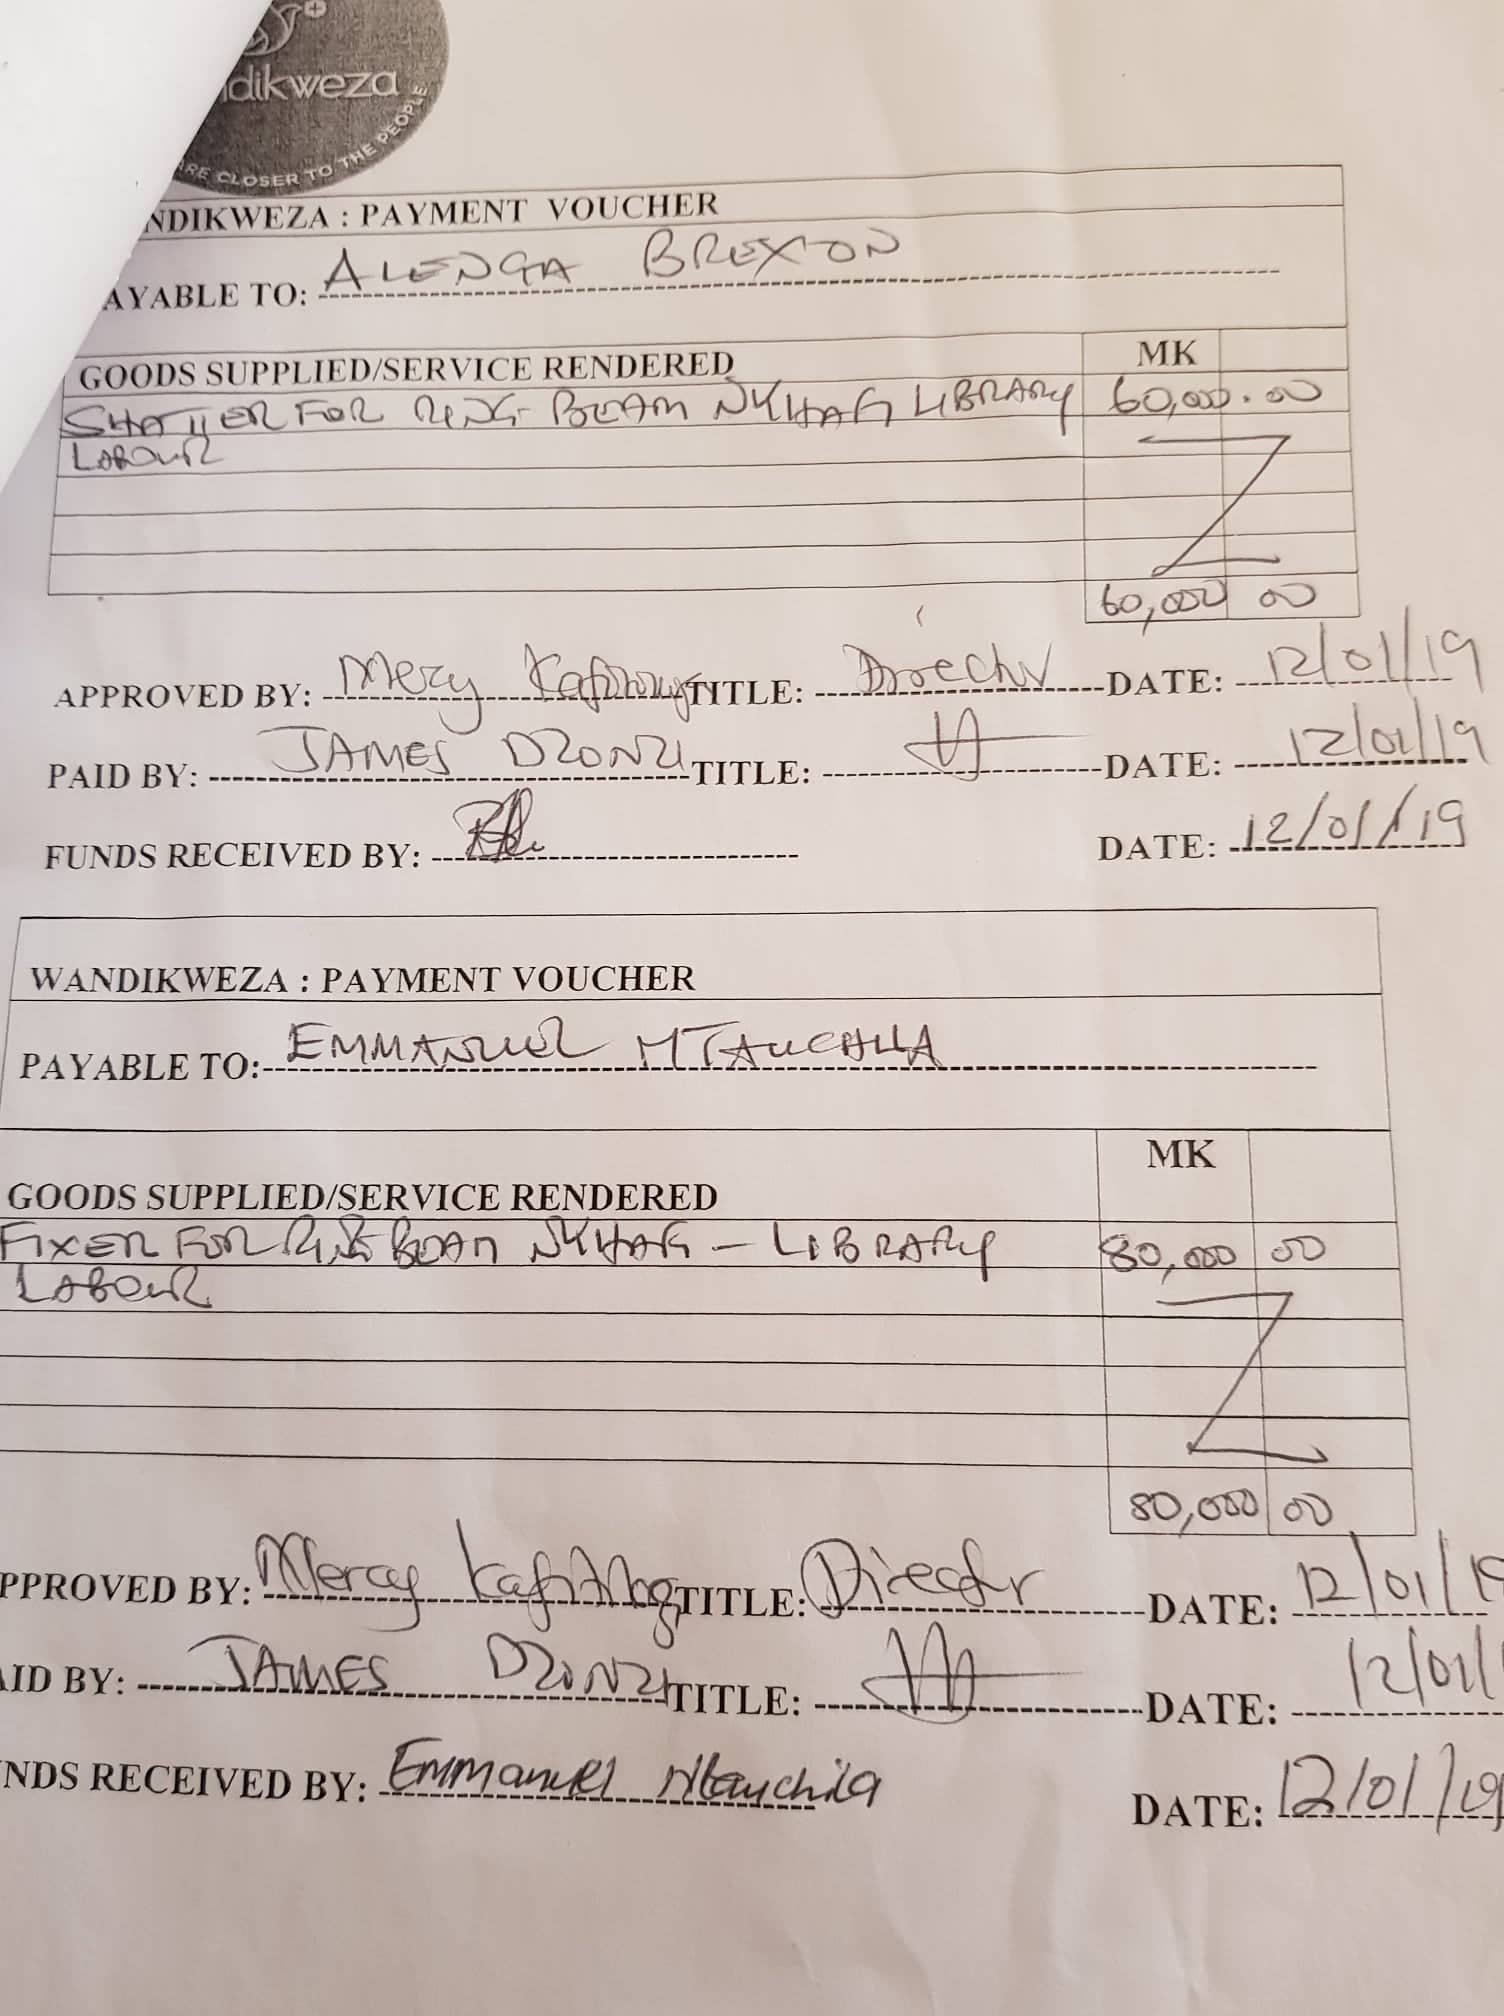 dikweza
RE CLOSER TO THE PEOPLE
NDIKWEZA : PAYMENT VOUCHER
AYABLE TO: ALENGA BREXON
GOODS SUPPLIED/SERVICE RENDERED MK
SHATTER FOR RING BEAM NKHAFI LIBRARY 60,000.00
LABOUR
60,000 00
APPROVED BY: Mercy TITLE: Director DATE: 12/01/19
PAID BY: JAMES DZONZI TITLE: DATE: 12/01/19
FUNDS RECEIVED BY: DATE: 12/01/19
WANDIKWEZA : PAYMENT VOUCHER
PAYABLE TO: EMMANUEL MTAUCHILA
MK
GOODS SUPPLIED/SERVICE RENDERED
FIXER FOR RING BEAM NKHAFI - LIBRARY 80,000 00
LABOUR
80,000 00
PPROVED BY: Mercy TITLE: Director DATE: 12/01/19
AID BY: JAMES DZONZI TITLE: DATE: 12/01/
NDS RECEIVED BY: Emmanuel Mtauchila DATE: 12/01/19